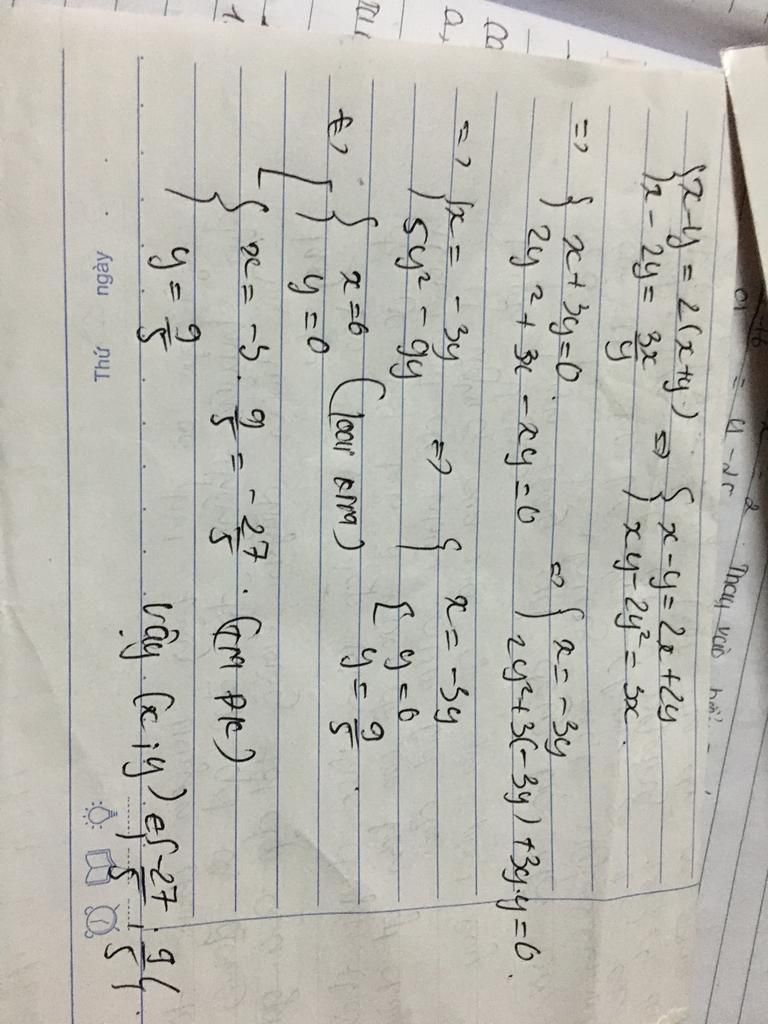 {x-y = 2(x+y)
{x - 2y = 3x/y => {x-y = 2x+2y
{xy - 2y² = 3x.
=> {x+3y=0
{2y² + 3x - xy = 0 => {x = -3y
{2y²+3(-3y)+3y.y=0.
=> {x = -3y
{5y² - 9y => {x = -3y
[y=0
y = 9/5.
{x=0
y=0 (loại ĐKXĐ)
{x = -3. 9/5 = -27/5. (TM ĐK)
y = 9/5
Vậy (x;y) ∈ {-27/5; 9/5}.
Thứ ngày
Thay vào